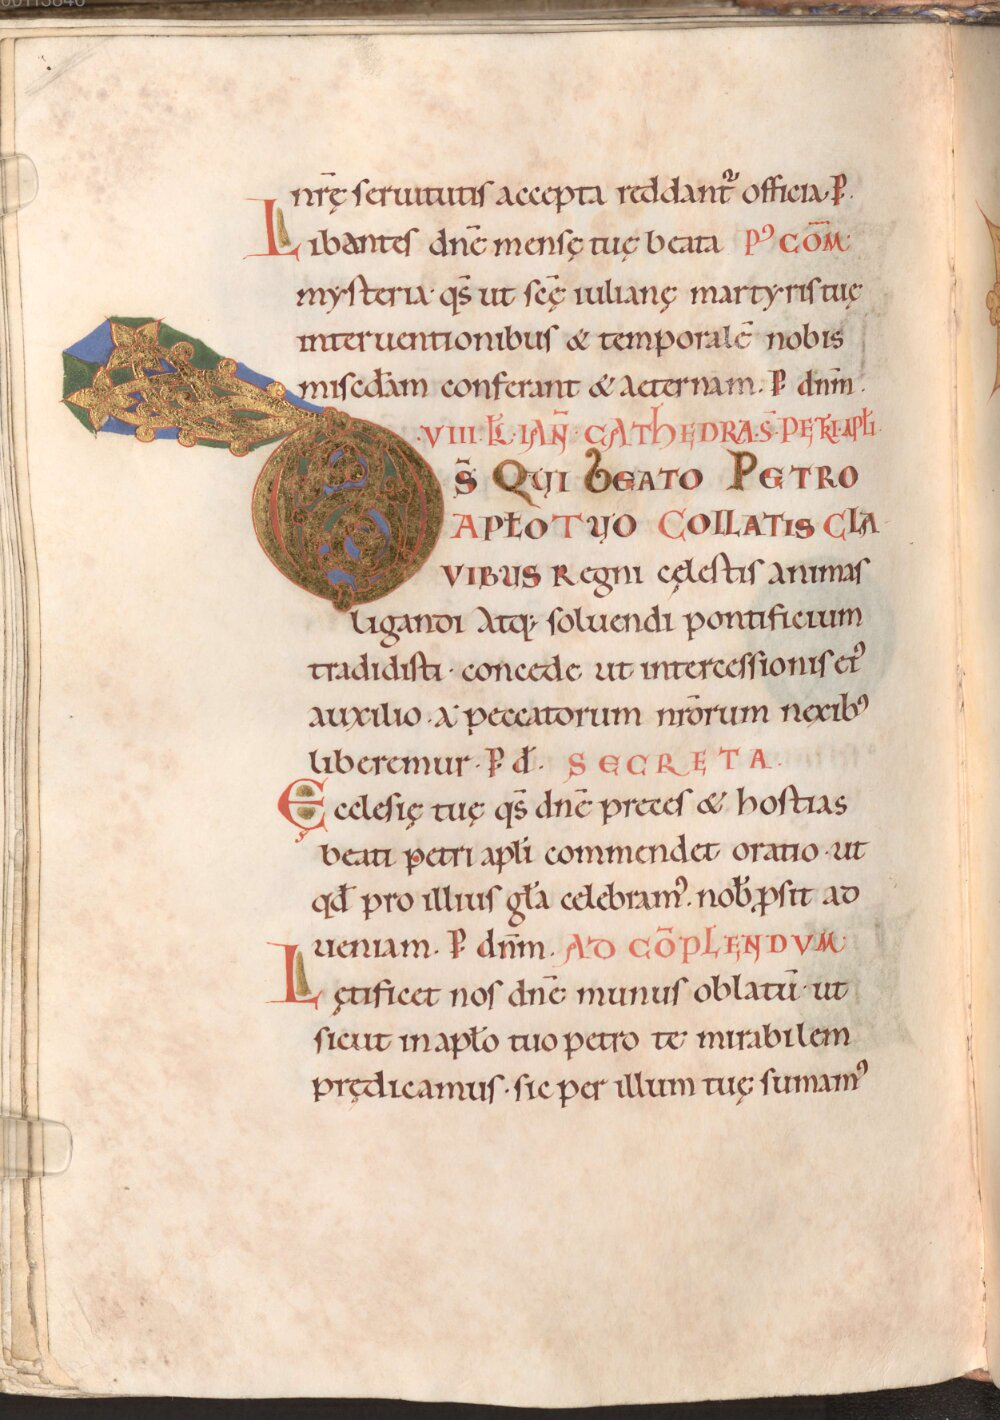 nrę̄ seruitutis accepta reddant᷑ officia. P.
Libantes dnē mensę tuę beata Pꝰ COM̄
mysteria qs̄ ut scę̄ iulianę martyris tuę
interuentionibus & temporalē nobis
misc̄dam conferant & aeternam. P dnm̄.
.VIII. KL. IAN̄. CATHEDRA. S̄. PETRI. APLI.
DS̄ QUI BEATO PETRO
APŁO TUO COLLATIS CLA
VIBUS Regni cęlestis animas
ligandi atq; soluendi pontificium
tradidisti. concede ut intercessionis eiꝰ
auxilio. a peccatorum nr̄orum nexibꝰ
liberemur. P d̄. SECRETA.
Ęcclesię tuę qs̄ dnē preces & hostias
beati petri apłi commendet oratio. ut
qđ pro illius gła celebramꝰ. nob̄ ꝓsit ad
ueniam. P dnm̄. AD CO̅PLENDUM.
Lętificet nos dnē munus oblatū. ut
sicut in apło tuo petro te mirabilem
prędicamus. sic per illum tuę sumamꝰ